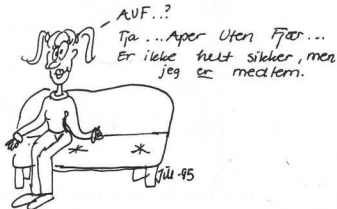 AUF..?
Tja...Aper Uten Fjær...
Er ikke helt sikker, men
jeg er medlem.
-95